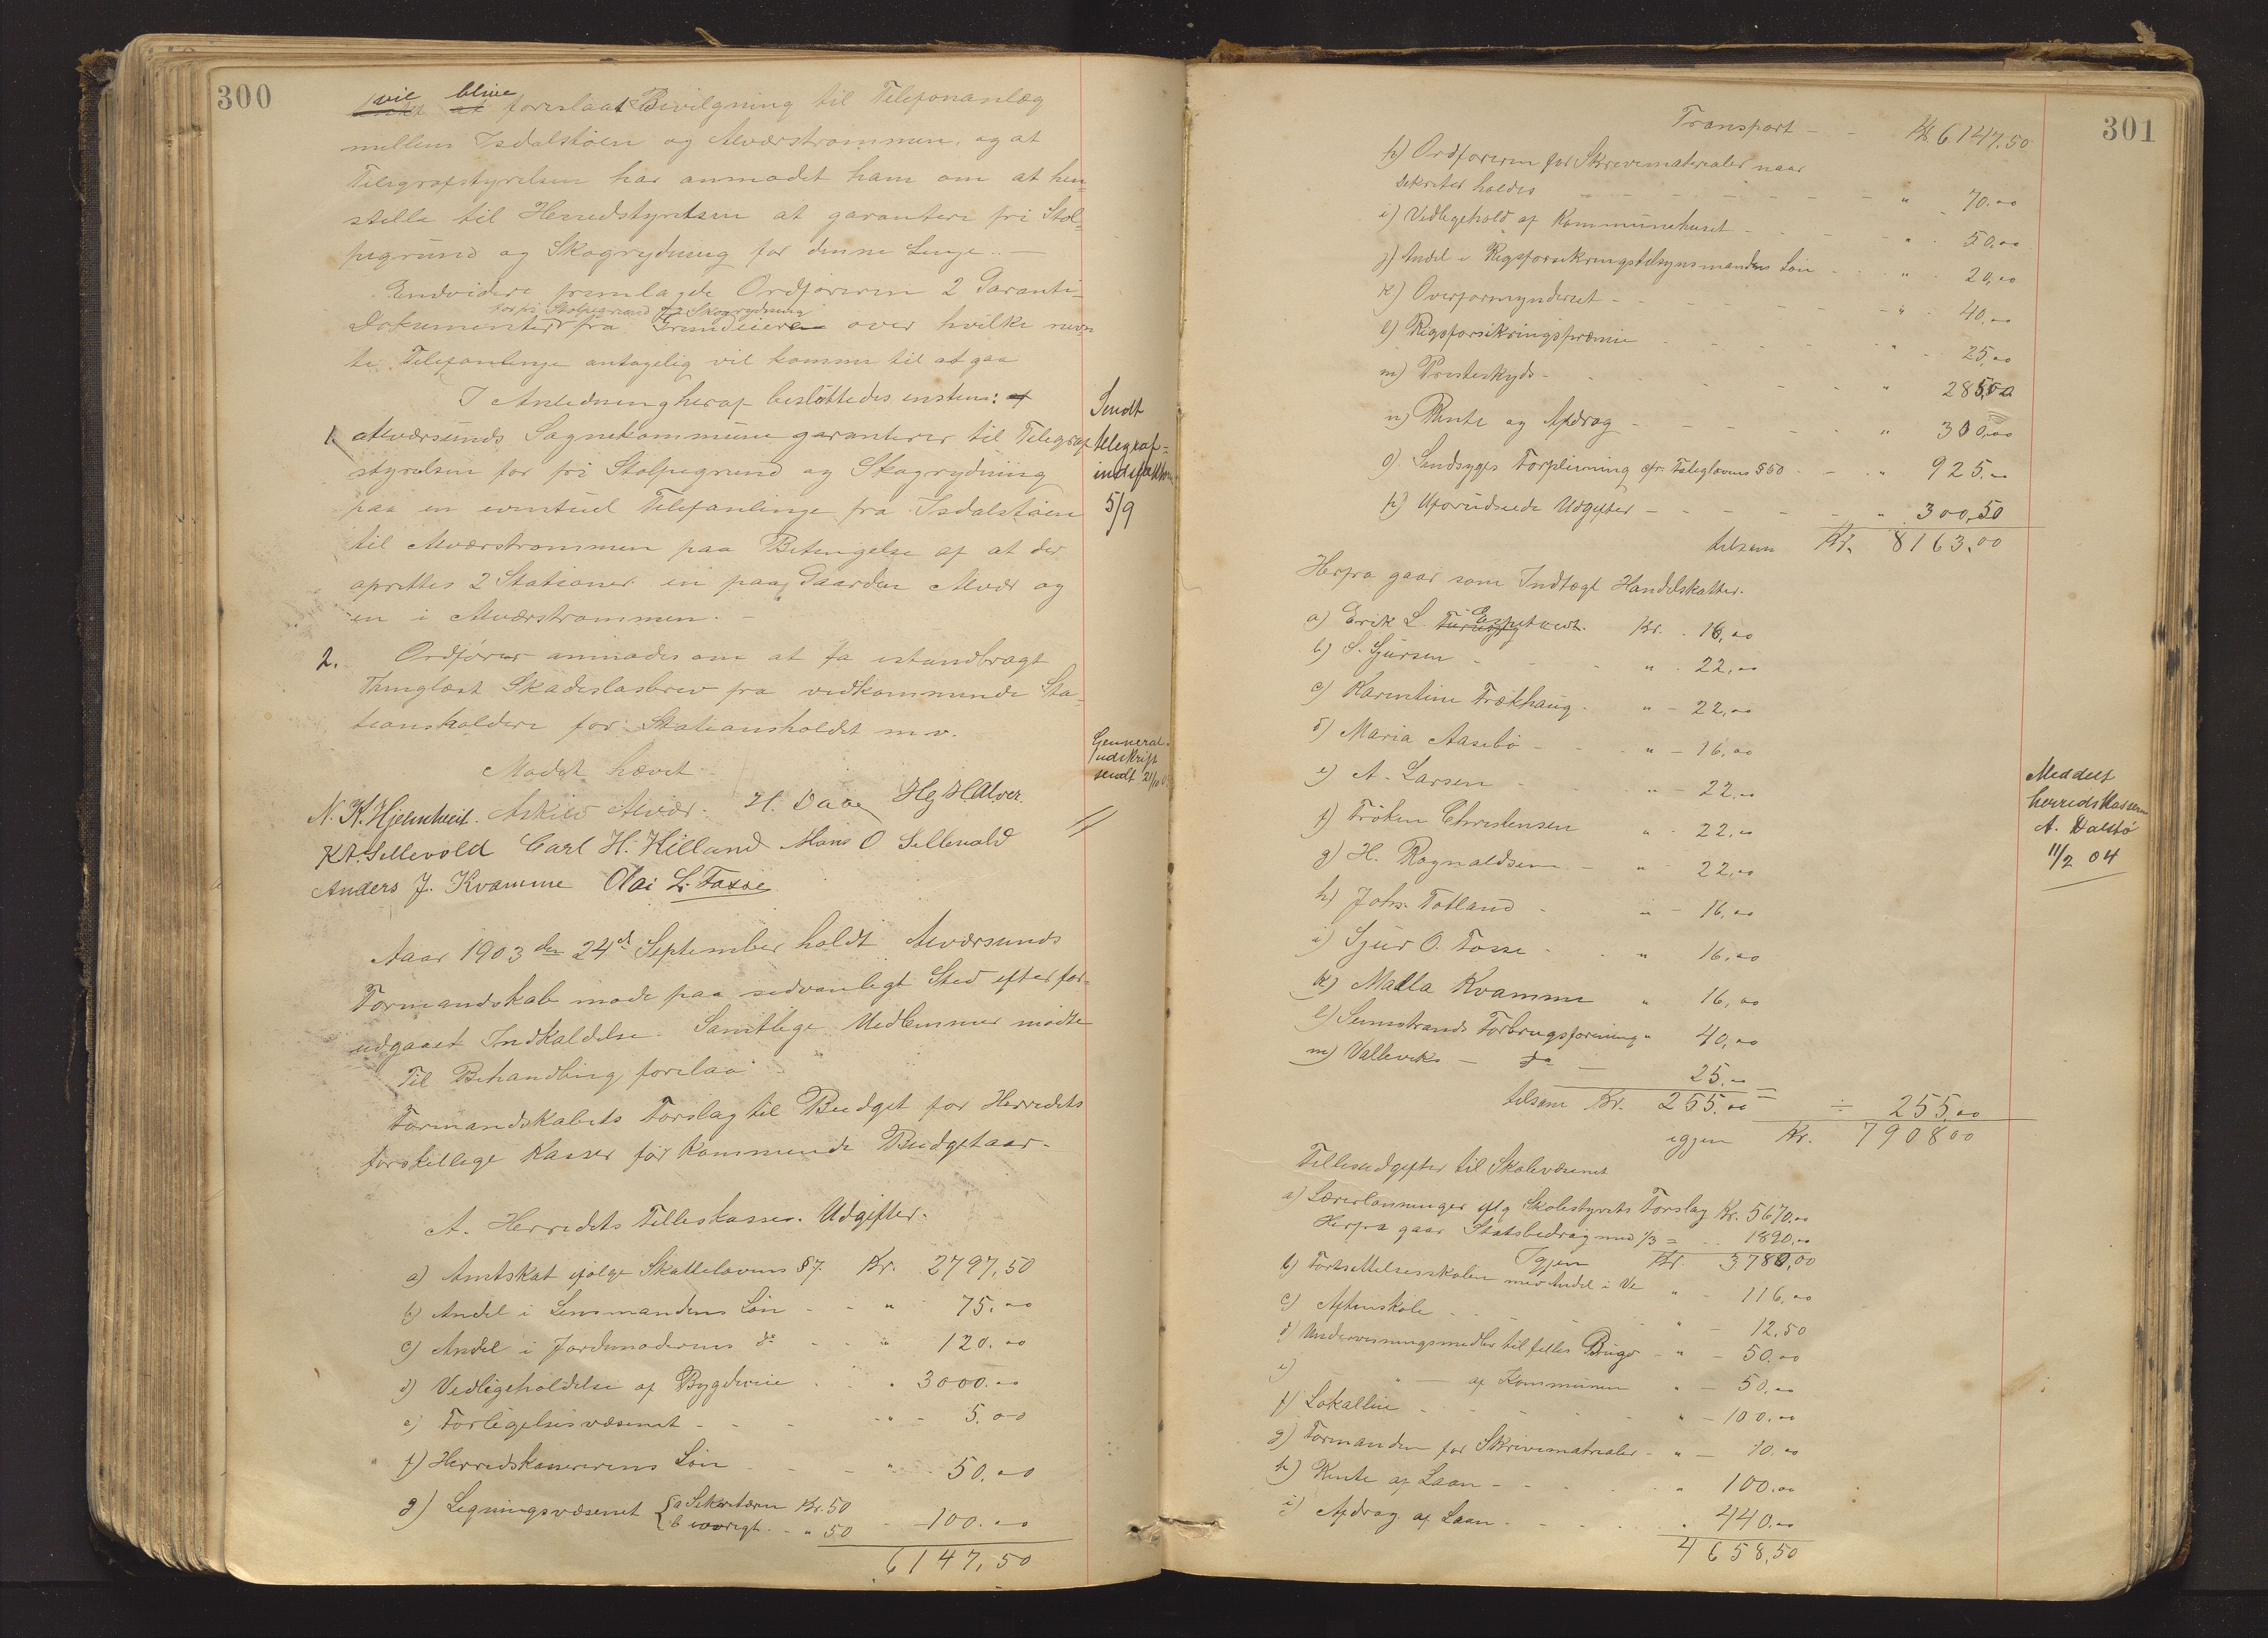 300
vil blive
foreslaat Bevilgning til Telefonanlæg
mellem Isdalstøen og Alværstrømmen, og at
Telegrafstyrelsen har anmodet ham om at hen-
stille til Herredstyrelsen at garantere fri Stol-
pegrund og Skogrydning for denne Linje. —
Endvidere fremlagde Ordføreren 2 Garanti-
for fri Stolpegrund og Skogrydning
Dokumenter fra Grundeiere over hvilke nævn
te Telefonlinje antagelig vil komme til at gaa
I Anledning heraf besluttedes enstem:
1. Alværsunds Sognekommune garanterer til Telegraf
styrelsen for fri Stolpegrund og Skogrydning
paa en eventuel Telefonlinje fra Isdalstøen
til Alværstrømmen paa Betingelse af at der
oprettes 2 Stationer en paa Gaarden Alvær og
en i Alværstrømmen. —
2. Ordfører anmodes om at fa istandbragt
Thinglæst Skadesløsbrev fra vedkommende Sta-
tionsholdere for Stationsholdet m. v.
Mødet hævet
Sendt
telegraf-
5/9
Genneral-
udskrift
sendt 21/10
N. K. Hjelmtveit. Askild Alvær. H. Daae Hg H Alver
K A. Sellevold Carl H. Hilland Mons O Sellevold
Anders J. Kvamme Olai L. Fosse
Aaar 1903 den 24de September holdt Alværsunds
Formandskab møde paa sedvanligt Sted efter for-
udgaaet Indkaldelse. Samtlige Medlemmer mødte
Til Behandling forelaa
Formandskabets Forslag til Budget for Herredets
forskellige Kasser for kommende Budgetaar.
A. Herredets Felleskasse. Udgifter.
a) Amtskat ifølge Skatteloven § 7. Kr. 2797,50
b) Andel i Lensmandens Løn - - " 75.00
c) Andel i Jordmoderens do - - " 120.00
d) Vedligeholdelse af Bygdeveie - " 3000.00
e) Forligelsesvæsenet - - - " - 5.00
f) Herredskassererens Løn - - - " - 50.00
g) Ligningsvæsenet { a Sekretæren Kr. 50
b iøvrigt - " 50 - 100.00
6147,50
301
Transport - - Kr 6147,50
h) Ordføreren for Skrivematerialer naar
Sekretær holdes - - - " - 70.00
i) Vedligehold af Kommunehuset - - - " - 50,00
j) Andel i Rigsforsikringstilsynsmandens Løn - - " - 20,00
k) Overformynderiet - - - " - 40,00
l) Rigsforsikringspræmie - - - " - 25,00
m) Presteskyds - - - " - 285,00
n) Rente og Afdrag - - - " 300,00
o) Sindsyges Forpleining cfr. Fatiglovens § 50 - - " 925.00
p) Uforudseede Udgifter - - - " 300,50
tilsam Kr. 8163,00
Herfra gaar som Indtægt Handelskatter.
a) Erik L. Espetvedt. Kr. - 16,00
b) S. Sjursen - - " - 22,00
c) Karentine Trækhaug - " - 22,00
d) Maria Aasebø - - " - 16,00
e) A. Larsen - - " - 22,00
f) Frøken Christensen " - 22,00
g) H. Rognaldsen - " - 22,00
h) Johs. Totland - " - 16,00
i) Sjur O. Fosse - - " 16,00
k) Malla Kvamme " 16,00
l) Seimstrands Forbrugsforening " 40,00
m) Vallevik - do - 25.00
tilsam Kr. 255.00 ÷ 255,00
igjen Kr. 7908 00
Meddelt
herredskasserer
A. Dalsbø
11/2 04
Fellesudgifter til Skolevæsenet
a) Lærerlønninger iflg Skolestyrets Forslag Kr. 5670,00
Herfra gaar Statsbidrag med 1/3 = - - 1890,00
Igjen Kr. 3780,00
b) Fortsettelsesskolen med Andel i Ve " - 116,00
c) Aftenskole - - - " - 12,50
d) Undervisningsmidler til felles Brug - " - 50.00
e) " - af Kommunen " - 50,00
f) Lokalleie - - - " - 100.00
g) Formanden for Skrivematrialer - " - 10.00
h) Rente af Laan - - - " 100.00
i) Afdrag af Laan - - - " 440.00
4658,50